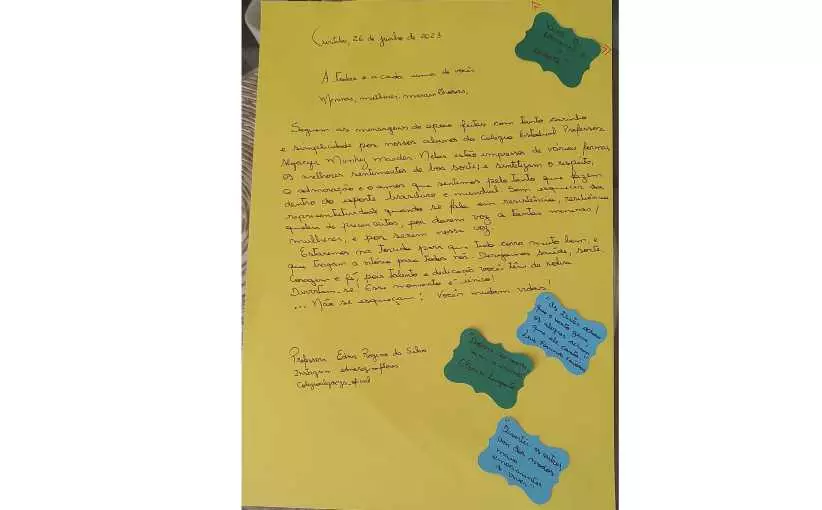 Curitiba, 26 de junho de 2023
A todas e a cada uma de vocês
Meninas, mulheres, maravilhosas,
Seguem as mensagens de apoio feitas com tanto carinho
e simplicidade por nossos alunos do Colégio Estadual Professor
Algacyr Munhoz Maeder. Nelas estão impressos de várias formas
os melhores sentimentos de boa sorte, e sintetizam o respeito,
a admiração e o amor que sentimos pelo tanto que fazem
dentro do esporte brasileiro e mundial. Sem esquecer da
representatividade quando se fala em resistência, resiliência
quebra de preconceitos, por darem voz a tantas meninas/
mulheres, e por serem nossa voz.
Estaremos na torcida para que tudo corra muito bem, e
que tragam a vitória para todos nós. Desejamos saúde, sorte
coragem e fé, pois talento e dedicação vocês têm de sobra.
Divirtam-se! Esse momento é único!
... Não se esqueçam! Vocês mudam vidas!
Professora Edna Regina da Silva
Instagram
que o vento geme
os alegres acham
que ele canta"
Luis Fernando Veríssimo
Clarice Lispector
"Ouvir os outros
um dos modos
mais
de viver"